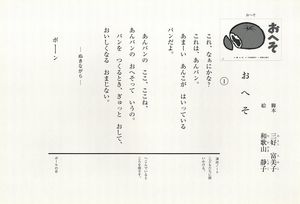 おへそ
おへそ
脚本 三好 富美子
絵 和歌山 静子
おへそ
①
これ、なぁにかな？
これは、あんパン。
あまーい あんこが はいっている
パンだよ。
あんパンの ここ、ここね、
あんパンの おへそって いうの。
パンを つくるとき、ぎゅっと おして、
おいしくなる おまじない。
―ぬきながら―
ポーン